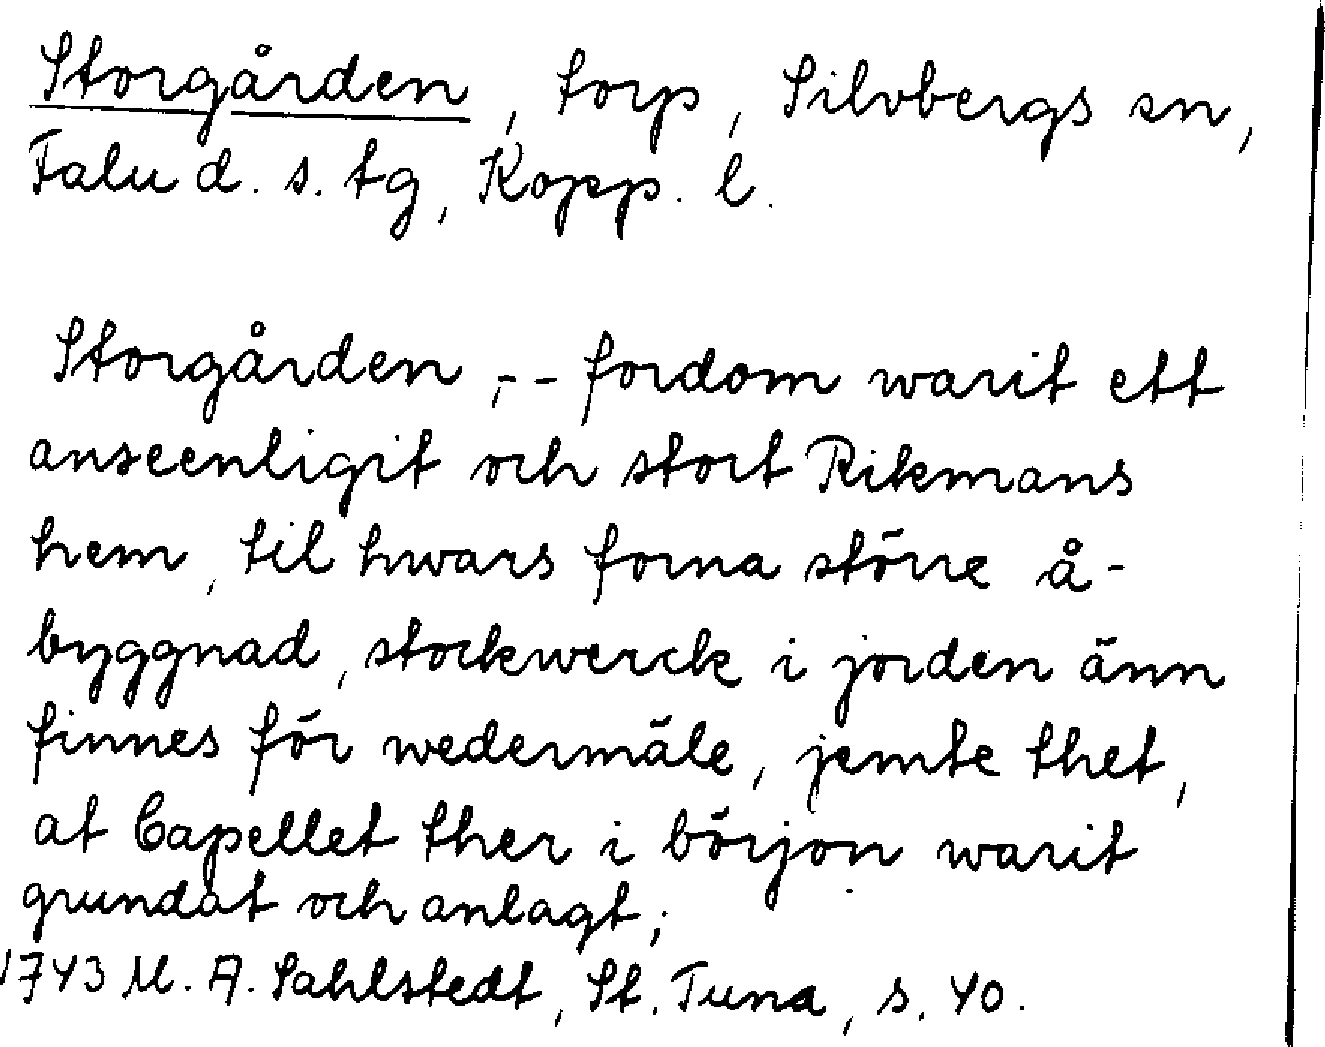 Storgården, torp, Silvbergs sn,
Falu d. s. tg, Kopp. l.
Storgården,-- fordom warit ett
anseenligit och stort Rikmans
hem, til hwars forna större å-
byggnad, stockwerck i jorden änn
finnes för wedermäle, jemte thet,
at Capellet ther i börjon warit
grundat och anlagt;
1743 M. A. Sahlstedt, St. Tuna, s. 40.